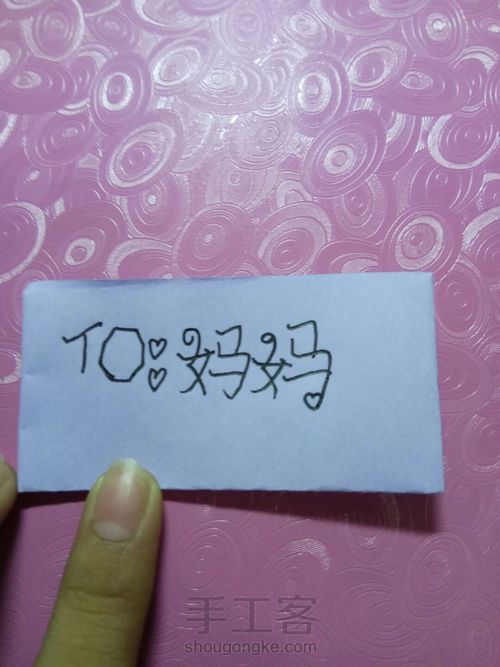 TO:妈妈
手工客
shougongke.com